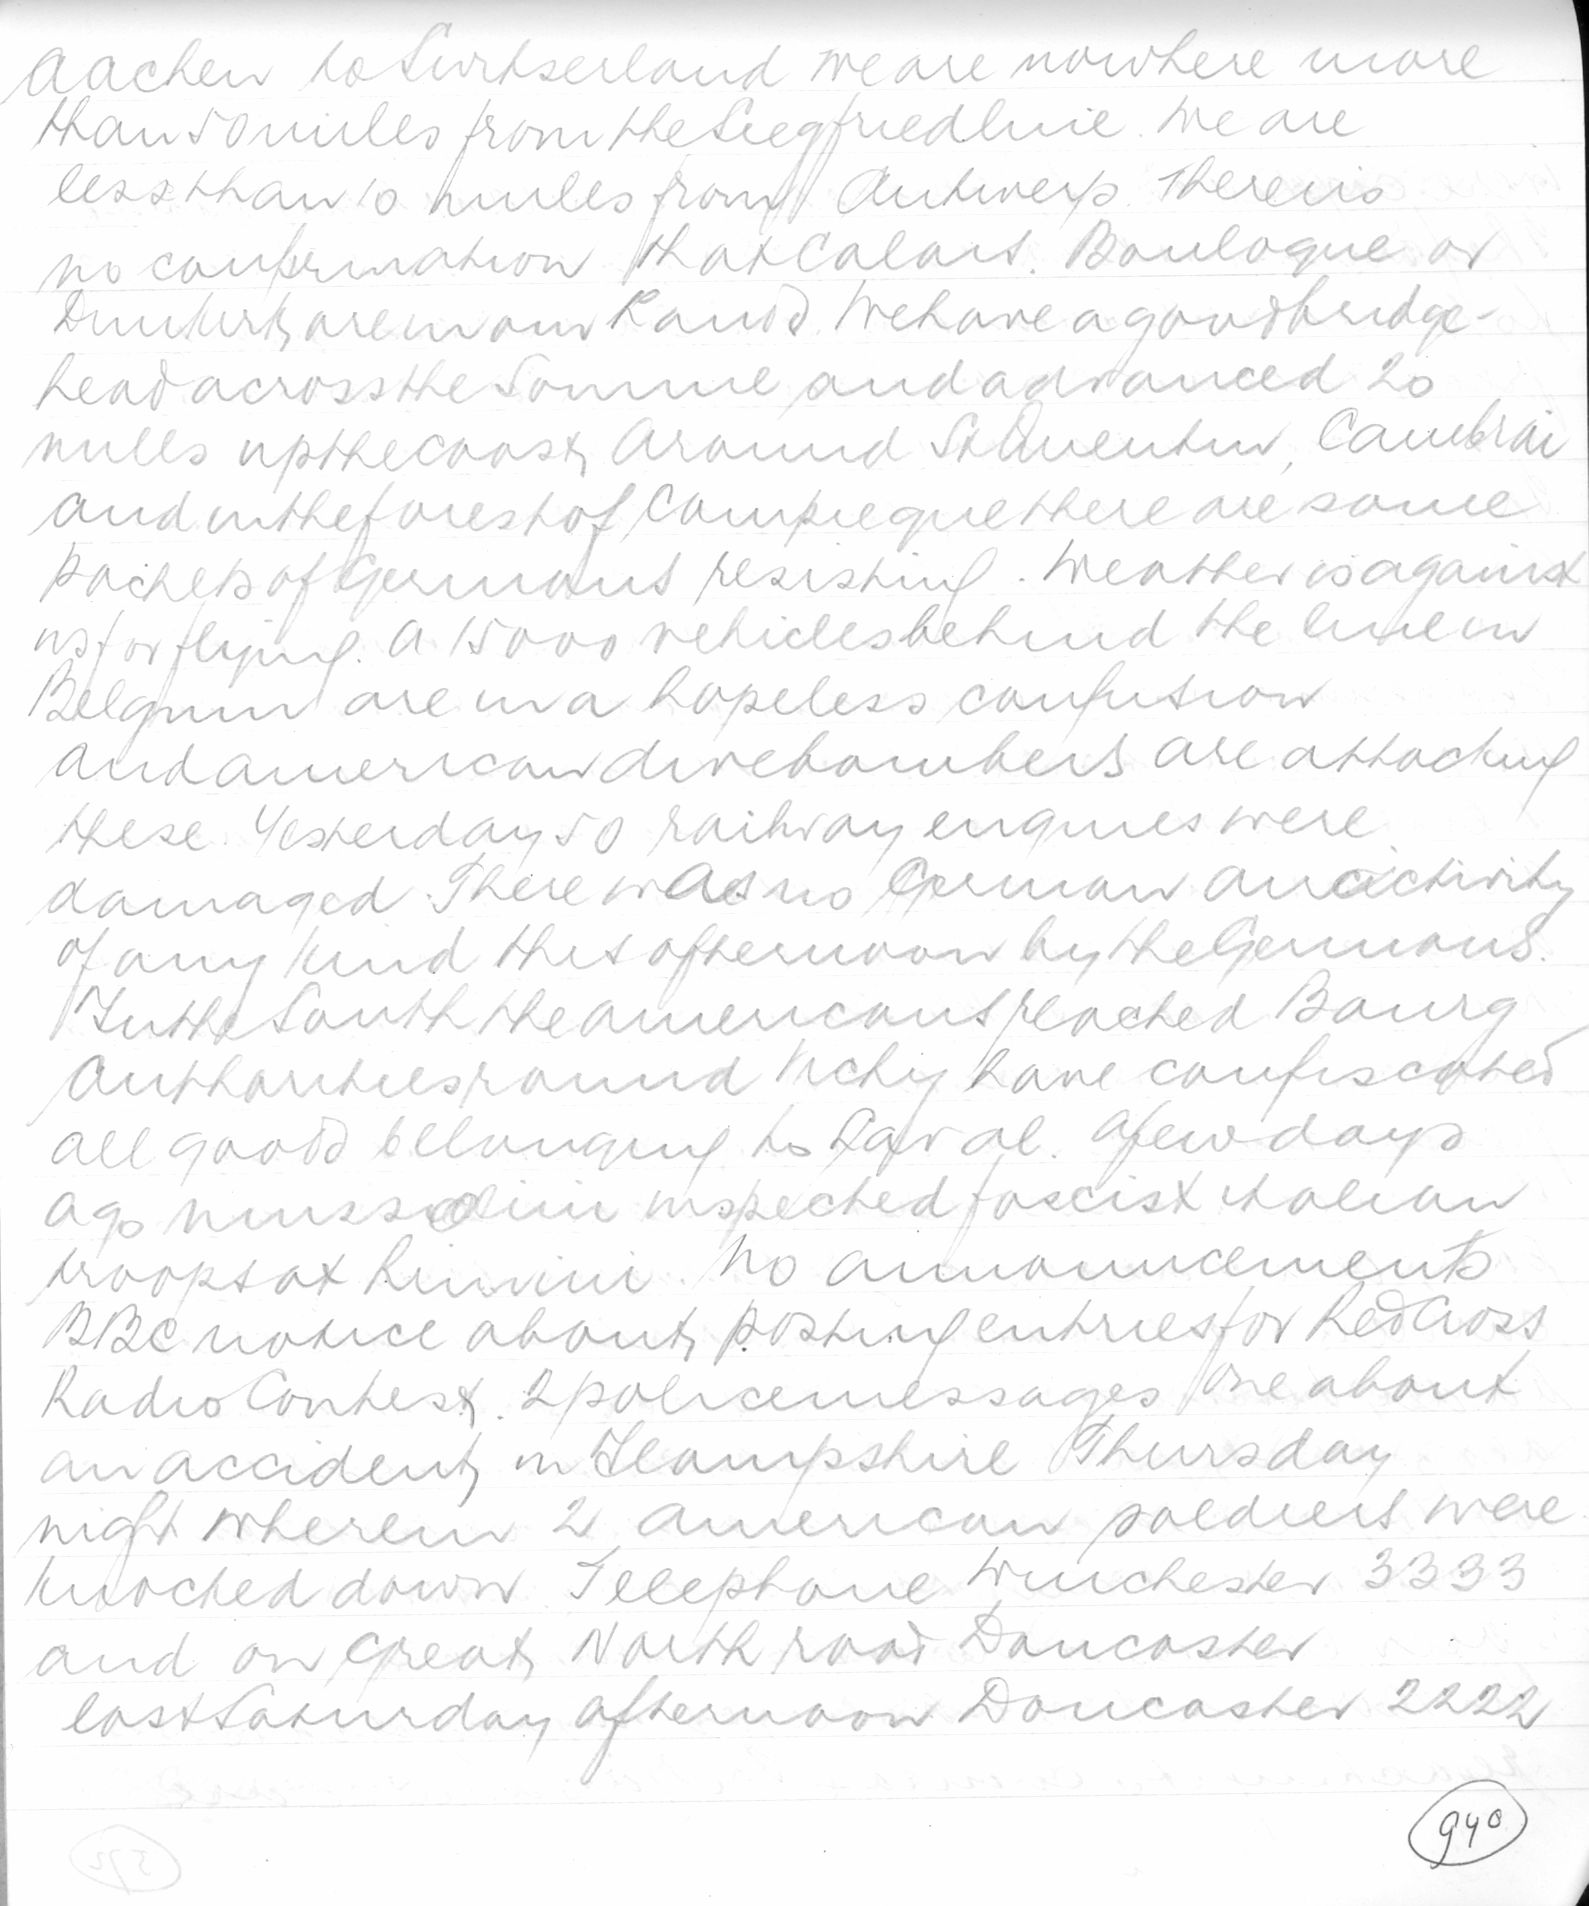 Aachen to Switserland we are nowhere more
than 50 miles from the Siegfriedline. We are
less than 10 miles from Antwerp. There is
no confirmation that Calais. Boulogue or
Dunkirk are in our hands. We have a good bridge-
head across the Somme and advanced 20
miles up the coast, Around St Quentin, Cambrai
and in the forest of Compiegne there are some
pockets of Germans resisting. Weather is against
us for flying. A 15000 vehicles behind the line in
Belgium are in a hopeless confusion
and american divebombers are attacking
these. Yesterday 50 railway engines were
damaged. There was no German activity
of any kind this afternoon by the Germans.
In the South the americans reached Bourg
Authorities round Vichy have confiscated
all goods belonging to Laval. A few days
ago Mussolini inspected fascist italian
troops at Rimini. No announcements
BBC notice about posting entries for Red Cross
Radio Contest. 2 police messages one about
an accident in Hampshire Thursday
night wherein 2 american soldiers were
knocked down Telephone Winchester 3333
and on Great North road Doncaster
last Saturday afternoon Doncaster 2222
940